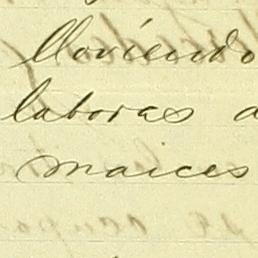 lloviendo
labores a
maices